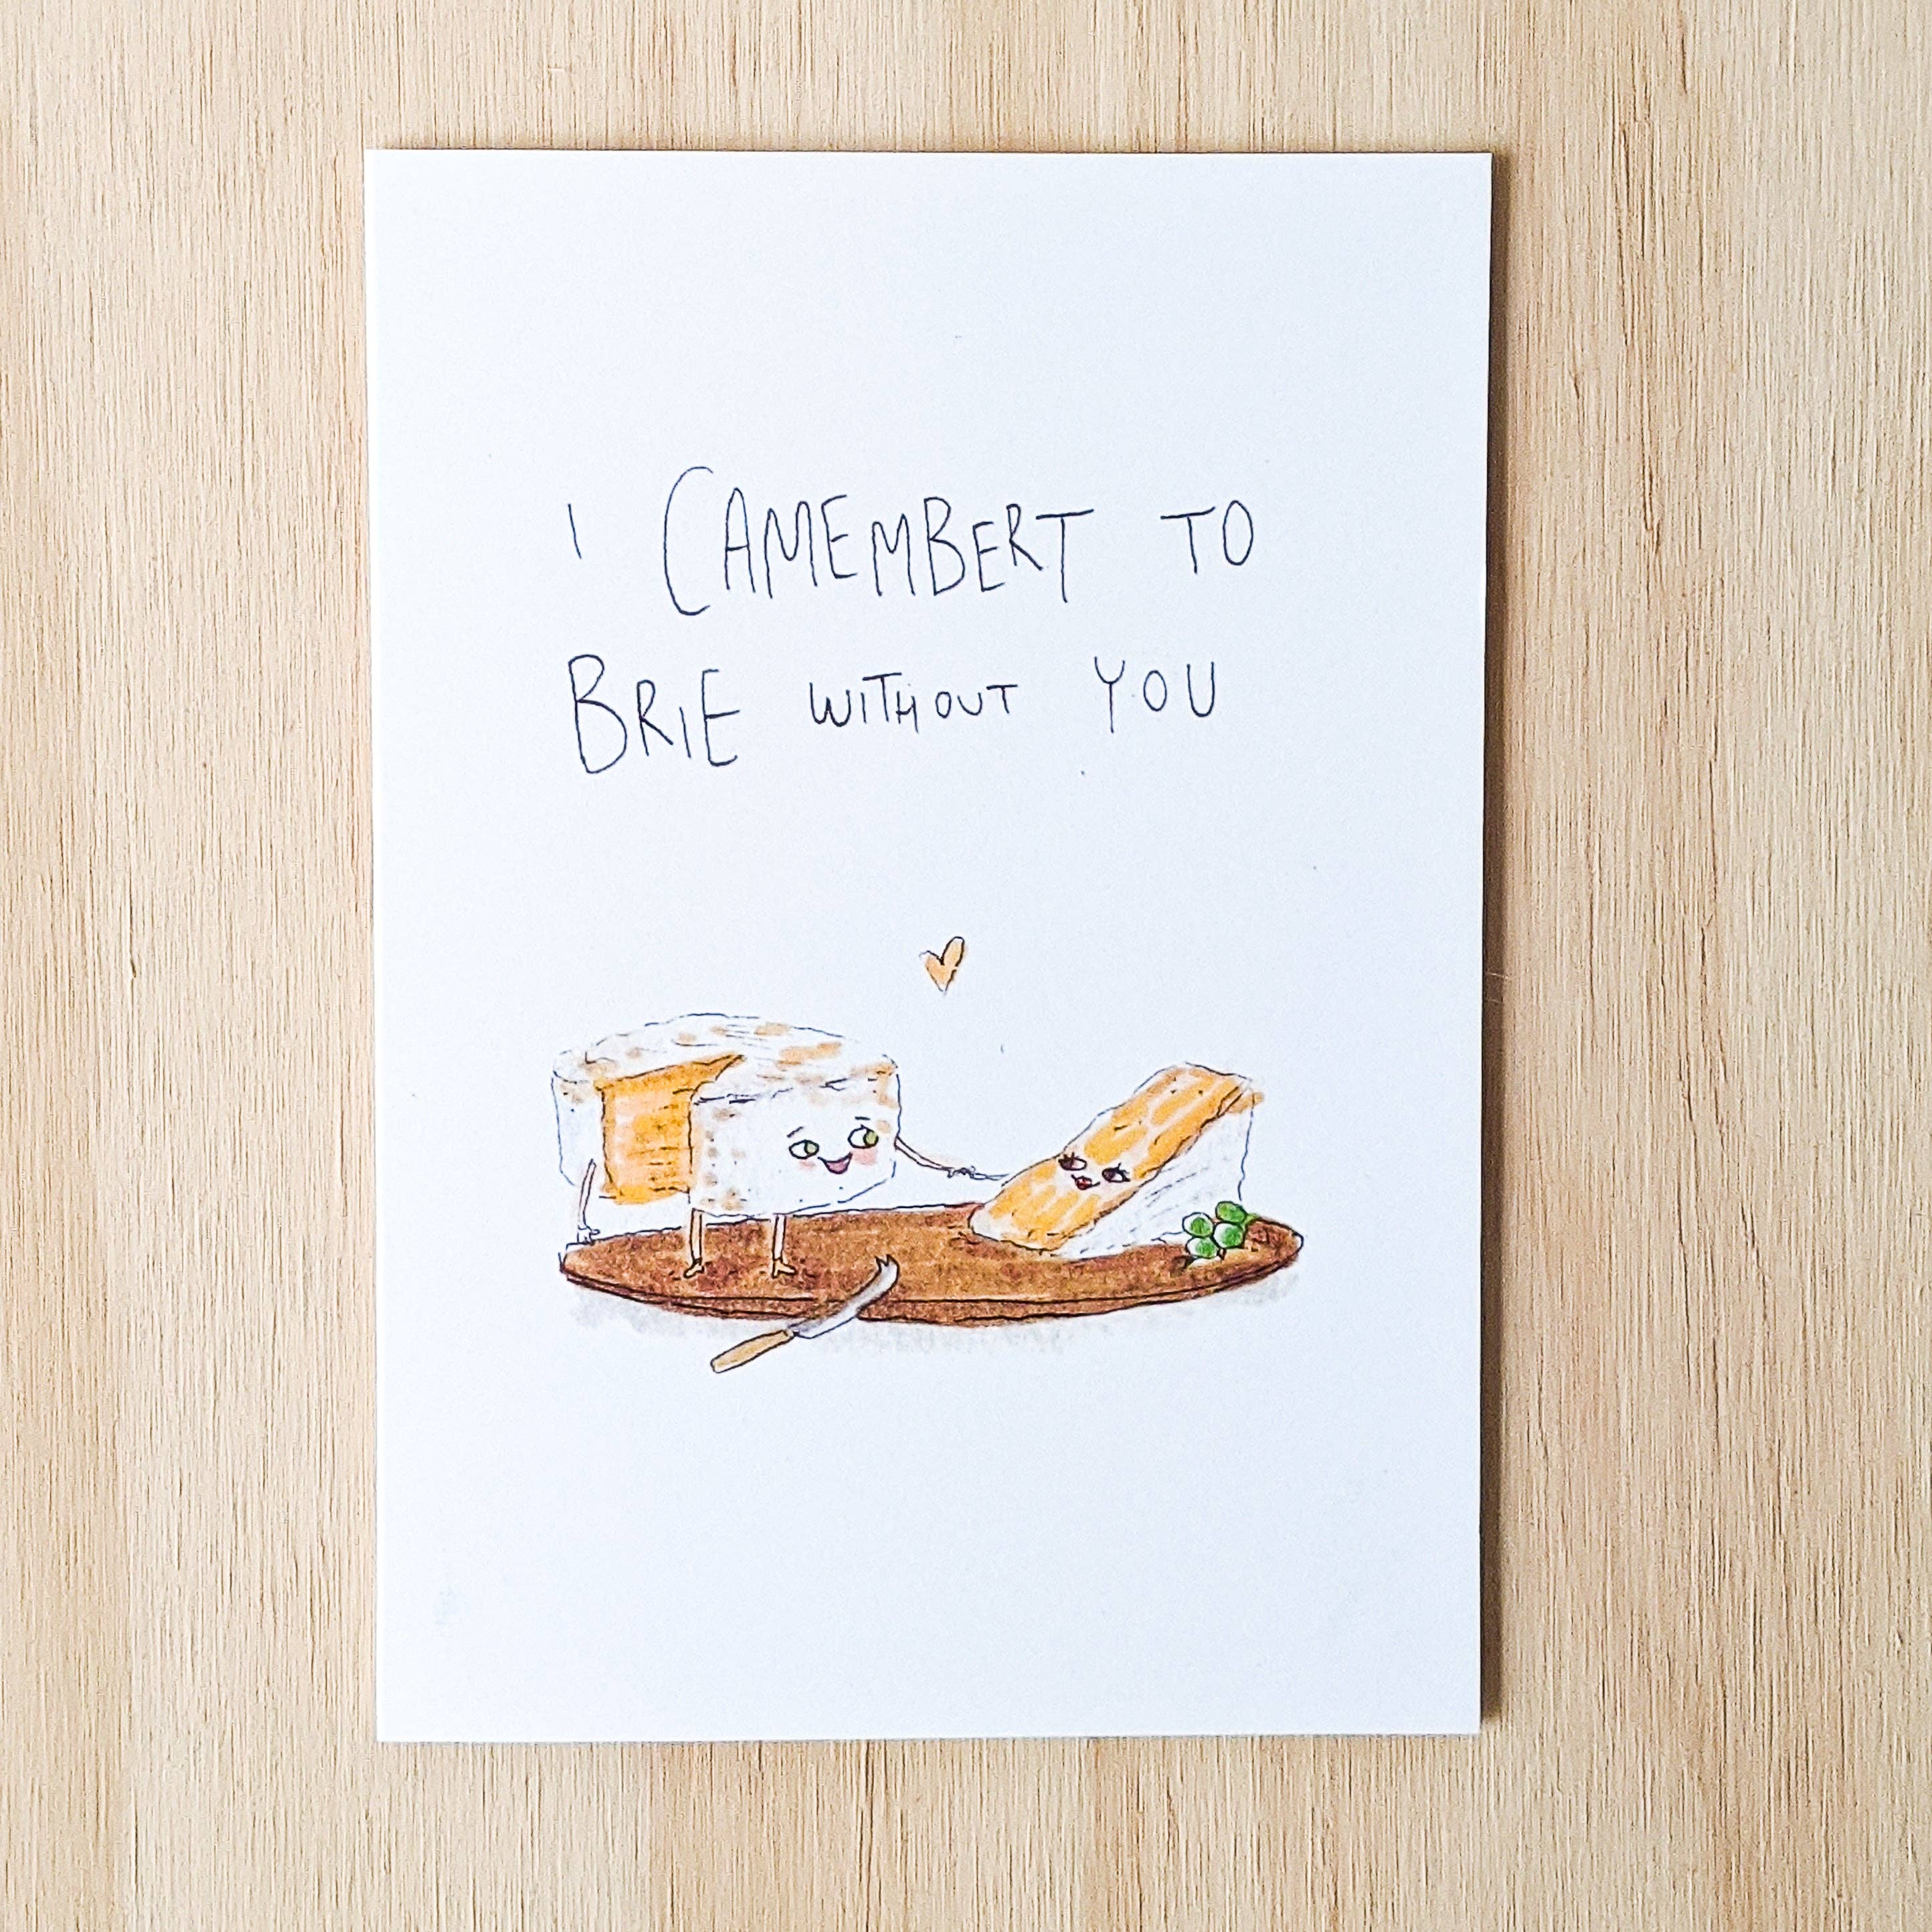 I CAMEMBERT TO
BRIE WITHOUT YOU